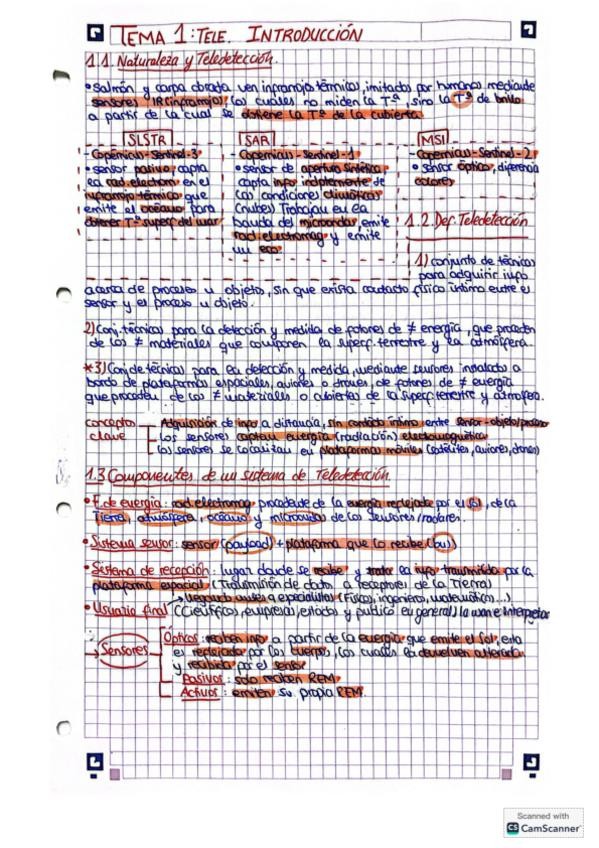 TEMA 1: TELE. INTRODUCCIÓN
1.1. Naturaleza y Teledetección.
• Salmón y carpa dorada ven infrarrojo térmico, imitados por humanos mediante
sensores IR (infrarrojo), los cuales no miden la Tª, sino la Tª de brillo
a partir de la cual se obtiene la Tª de la cubierta.
SLSTR
- Copérnicus-Sentinel-3
• sensor pasivo, capta
la rad. electrom en el
infrarrojo térmico que
emite el océano para
obtener Tª superf. del mar
SAR
- Copernicus-Sentinel-1
• sensor de apertura sintética
capta info indptemente de
las condiciones climáticas
(nubes) Trabajan en la
banda del microondas, emite
rad. electromag y emite
un eco.
MSI
- Copernicus-Sentinel-2
• sensor óptico, diferencia
colores
1.2. Def. Teledetección
1) conjunto de técnicas
para adquirir info
acerca de proceso u objeto, sin que exista contacto físico íntimo entre el
sensor y el proceso u objeto.
2) Conj. técnicas para la detección y medida de fotones de ≠ energía, que proceden
de los ≠ materiales que componen la superf. terrestre y la atmósfera.
*3) Conj de técnicas para la detección y medida, mediante sensores instalados a
bordo de plataformas espaciales, aviones o drones, de fotones de ≠ energía
que proceden de los ≠ materiales o cubiertas de la superf. terrestre y atmósfera.
conceptos clave
Adquisición de info a distancia, sin contacto íntimo entre sensor-objeto/proceso
Los sensores captan energía (radiación) electromagnética
Los sensores se localizan en plataformas móviles (satélites, aviones, drones)
1.3 Componentes de un sistema de Teledetección.
• F. de energía: rad. electromag procedente de la energía reflejada por el Sol, de la
Tierra, atmósfera, océano y microondas de los sensores/radares.
• Sistema sensor: sensor (payload) + plataforma que lo recibe (bus)
• Sistema de recepción: lugar donde se recibe y trata la info transmitida por la
plataforma espacial (Transmisión de datos a receptores de la Tierra)
→ llegando antes a especialistas (Físicos, ingenieros, matemáticos...)
• Usuario final (Científicos, empresas, estados y público en general) la van a interpretar
→ Sensores
Ópticos: reciben info a partir de la energía que emite el Sol, esta
es reflejada por los cuerpos, los cuales la devuelven alterada
y recibida por el sensor
Pasivos: solo reciben REM.
Activos: emiten su propia REM.
Scanned with
CS CamScanner